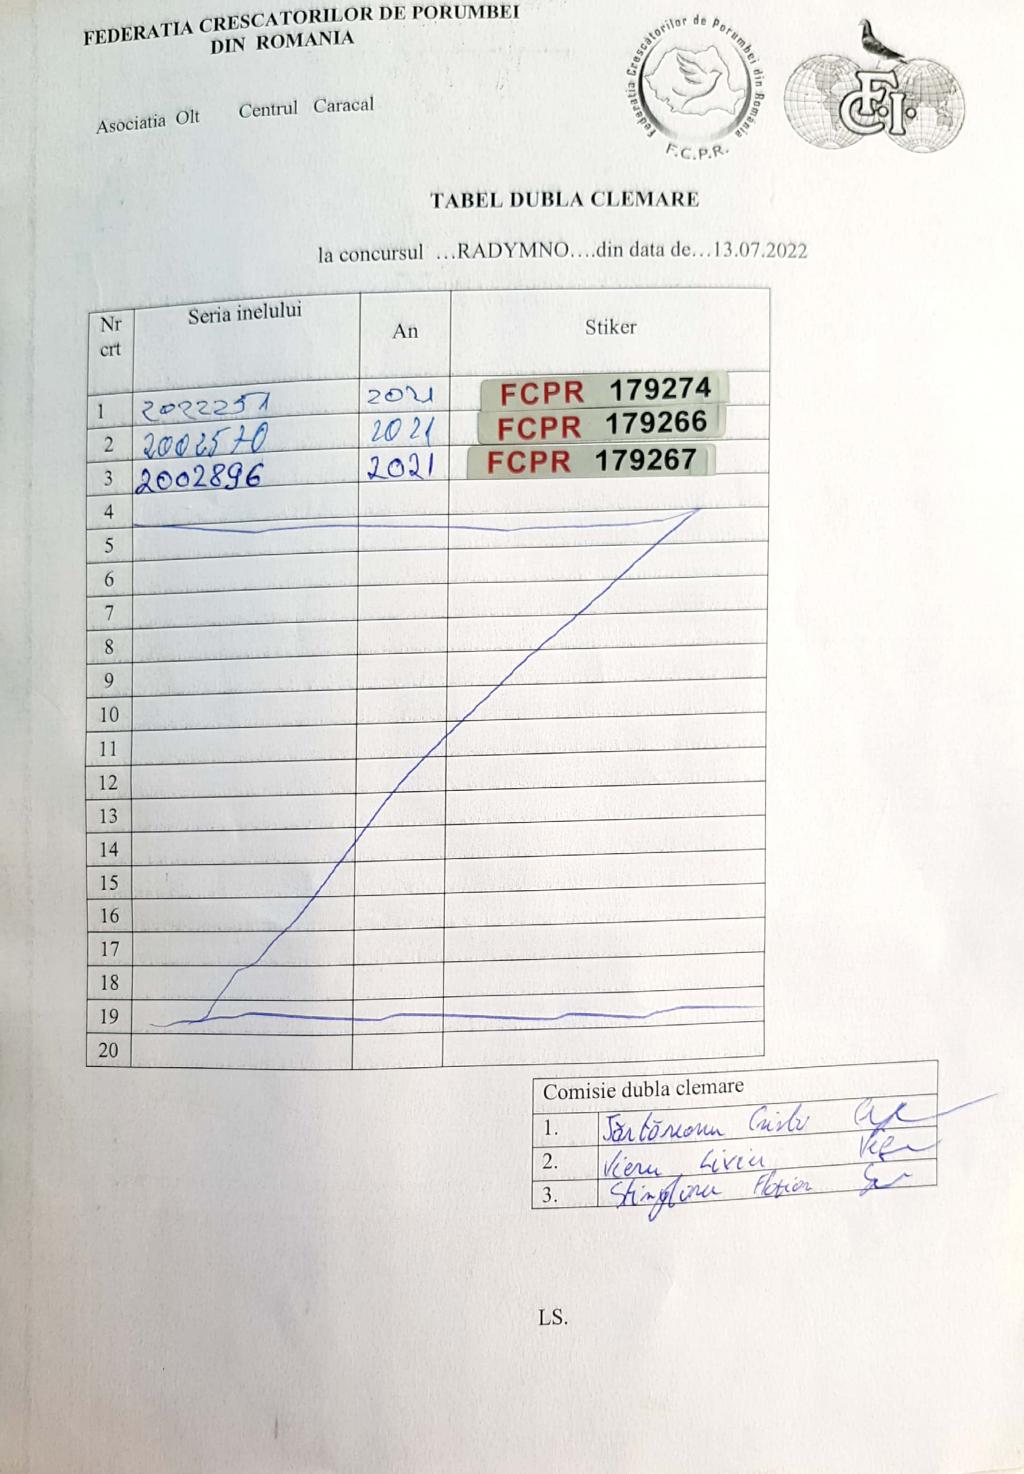 FEDERATIA CRESCATORILOR DE PORUMBEI
DIN ROMANIA
Federatia Crescătorilor de Porumbei din România
F.C.P.R.
F.C.I.
Asociatia Olt Centrul Caracal
TABEL DUBLA CLEMARE
la concursul ...RADYMNO....din data de...13.07.2022
Nr crt Seria inelului An Stiker
1 2022251 2021 FCPR 179274
2 2002570 2021 FCPR 179266
3 2002896 2021 FCPR 179267
4
5
6
7
8
9
10
11
12
13
14
15
16
17
18
19
20
Comisie dubla clemare
1.
2. Vieru Liviu
3. Florian
LS.